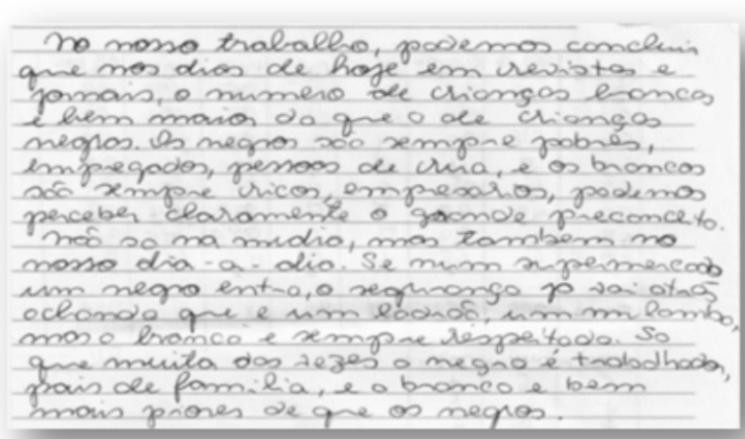 No nosso trabalho, podemos concluir
que nos dias de hoje em revistas e
jornais, o numero de crianças brancas
e bem maior do que o de crianças
negras. Os negros são sempre pobres,
empregados, pessoas de , e os brancos
são sempre ricos, empresarios, podemos
perceber claramente o grande preconceito.
Não so na midia, mas tambem no
nosso dia-a-dia. Se num supermercado
um negro entra, o segurança p vai atrás
achando que e um ladrão, um
mas o branco e sempre respeitado. So
que muita das vezes o negro é trabalhador,
pais de familia, e o branco e bem
mais piores de que os negros.